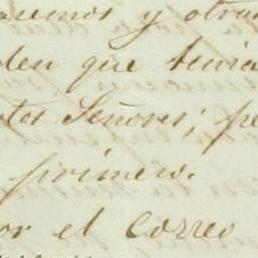 aremos y otra
den que tenia
tos Señores; pe
primero.
or el correo